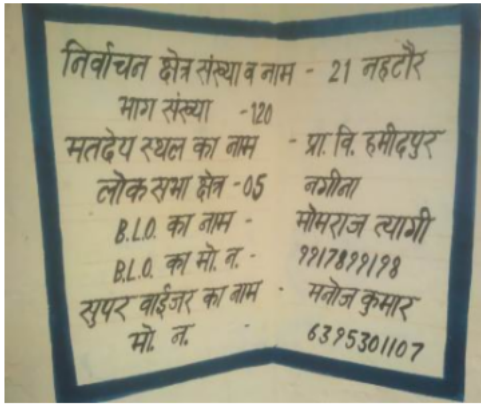 निर्वाचन क्षेत्र संख्या व नाम - 21 नहटौर
भाग संख्या -120
मतदेय स्थल का नाम - प्रा. वि. हमीदपुर
लोक सभा क्षेत्र -05 नगीना
B.L.O. का नाम - मोमराज त्यागी
B.L.O. का मो. न. - 9917899198
सुपर वाईजर का नाम - मनोज कुमार
मो. न. - 6395301107